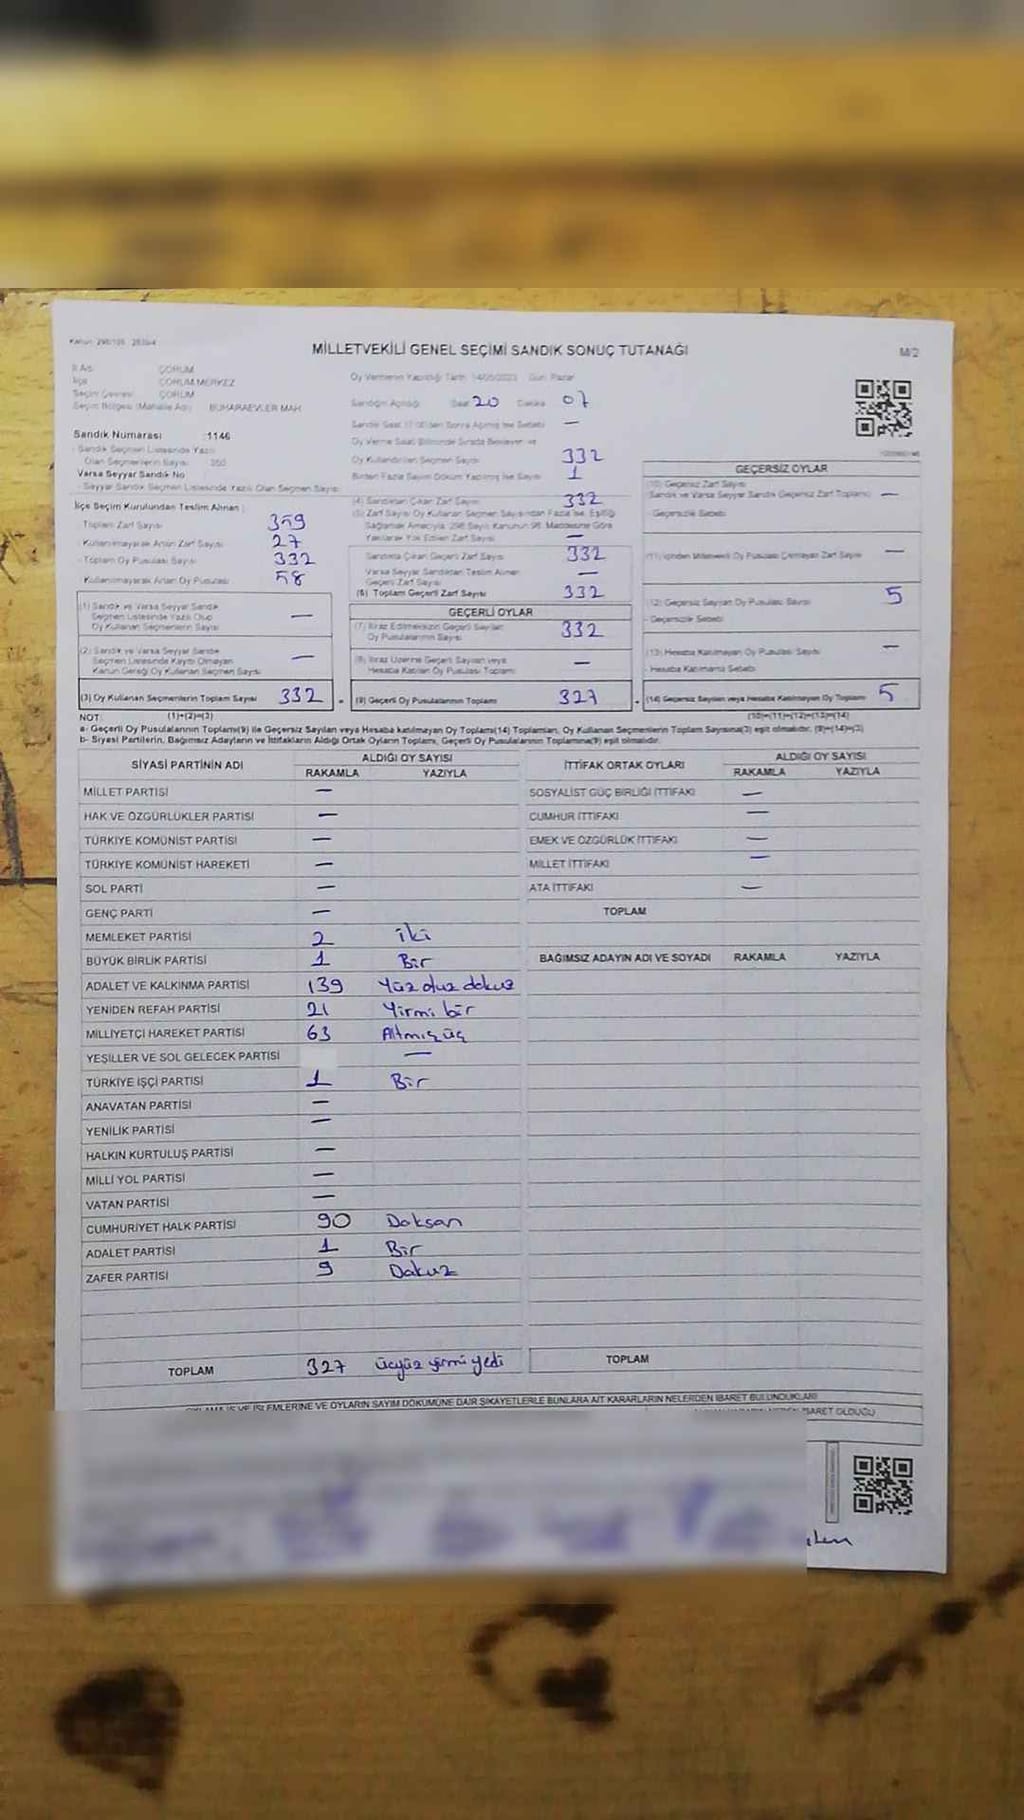 MİLLETVEKİLİ GENEL SEÇİMİ SANDIK SONUÇ TUTANAĞI
M/2
İl Adı ÇORUM
İlçe ÇORUM MERKEZ
Seçim Çevresi ÇORUM
Seçim Bölgesi (Mahalle Adı) BUHARAEVLER MAH
Sandık Numarası :1146
- Sandık Seçmen Listesinde Yazılı
Olan Seçmenlerin Sayısı
Varsa Seyyar Sandık No
- Seyyar Sandık Seçmen Listesinde Yazılı Olan Seçmen Sayısı
İlçe Seçim Kurulundan Teslim Alınan
- Toplam Zarf Sayısı 359
- Kullanılmayarak Artan Zarf Sayısı 27
- Toplam Oy Pusulası Sayısı 332
Kullanılmayarak Artan Oy Pusulası 58
(1) Sandık ve Varsa Seyyar Sandık
Seçmen Listesinde Yazılı Olup
Oy Kullanan Seçmenlerin Sayısı —
(2) Sandık ve Varsa Seyyar Sandık
Seçmen Listesinde Kaydı Olmayan
Kanun Gereği Oy Kullanan Seçmen Sayısı —
(3) Oy Kullanan Seçmenlerin Toplam Sayısı 332
Oy Vermenin Yapıldığı Tarih 14/05/2023 Gün Pazar
Sandığın Açıldığı Saat 20 Dakika 07
Sandık Saat 17:00'den Sonra Açılmış İse Sebebi —
Oy Verme Saati Bitiminde Sırada Bekleyen ve
Oy Kullandırılan Seçmen Sayısı 332
Birden Fazla Sayım Döküm Yapılmış İse Sayısı 1
(4) Sandıktan Çıkan Zarf Sayısı 332
(5) Zarf Sayısı Oy Kullanan Seçmen Sayısından Fazla İse, Eşitliği
Sağlamak Amacıyla, 298 Sayılı Kanunun 98. Maddesine Göre
Yakılarak Yok Edilen Zarf Sayısı —
Sandıkta Çıkan Geçerli Zarf Sayısı 332
Varsa Seyyar Sandıktan Teslim Alınan
Geçerli Zarf Sayısı —
(6) Toplam Geçerli Zarf Sayısı 332
GEÇERLİ OYLAR
(7) İtiraz Edilmeksizin Geçerli Sayılan
Oy Pusulalarının Sayısı 332
(8) İtiraz Üzerine Geçerli Sayılan veya
Hesaba Katılan Oy Pusulası Toplamı —
(9) Geçerli Oy Pusulalarının Toplamı 327
GEÇERSİZ OYLAR
(10) Geçersiz Zarf Sayısı
Sandık ve Varsa Seyyar Sandık Geçersiz Zarf Toplamı —
- Geçersizlik Sebebi
(11) İçinden Milletvekili Oy Pusulası Çıkmayan Zarf Sayısı —
(12) Geçersiz Sayılan Oy Pusulası Sayısı 5
- Geçersizlik Sebebi
(13) Hesaba Katılmayan Oy Pusulası Sayısı —
- Hesaba Katılmama Sebebi
(14) Geçersiz Sayılan veya Hesaba Katılmayan Oy Toplamı 5
NOT: (1)+(2)=(3) (10)+(11)+(12)+(13)=(14)
a- Geçerli Oy Pusulalarının Toplamı(9) ile Geçersiz Sayılan veya Hesaba katılmayan Oy Toplamı(14) Toplamları, Oy Kullanan Seçmenlerin Toplam Sayısına(3) eşit olmalıdır. (9)+(14)=(3)
b- Siyasi Partilerin, Bağımsız Adayların ve İttifakların Aldığı Ortak Oyların Toplamı, Geçerli Oy Pusulalarının Toplamına(9) eşit olmalıdır.
SİYASİ PARTİNİN ADI ALDIĞI OY SAYISI
RAKAMLA YAZIYLA
MİLLET PARTİSİ —
HAK VE ÖZGÜRLÜKLER PARTİSİ —
TÜRKİYE KOMÜNİST PARTİSİ —
TÜRKİYE KOMÜNİST HAREKETİ —
SOL PARTİ —
GENÇ PARTİ —
MEMLEKET PARTİSİ 2 iki
BÜYÜK BİRLİK PARTİSİ 1 Bir
ADALET VE KALKINMA PARTİSİ 139 Yüz otuz dokuz
YENİDEN REFAH PARTİSİ 21 Yirmi bir
MİLLİYETÇİ HAREKET PARTİSİ 63 Altmış üç
YEŞİLLER VE SOL GELECEK PARTİSİ —
TÜRKİYE İŞÇİ PARTİSİ 1 Bir
ANAVATAN PARTİSİ —
YENİLİK PARTİSİ —
HALKIN KURTULUŞ PARTİSİ —
MİLLİ YOL PARTİSİ —
VATAN PARTİSİ —
CUMHURİYET HALK PARTİSİ 90 Doksan
ADALET PARTİSİ 1 Bir
ZAFER PARTİSİ 9 Dokuz
TOPLAM 327 üçyüz yirmi yedi
İTTİFAK ORTAK OYLARI ALDIĞI OY SAYISI
RAKAMLA YAZIYLA
SOSYALİST GÜÇ BİRLİĞİ İTTİFAKI —
CUMHUR İTTİFAKI —
EMEK VE ÖZGÜRLÜK İTTİFAKI —
MİLLET İTTİFAKI —
ATA İTTİFAKI —
TOPLAM
BAĞIMSIZ ADAYIN ADI VE SOYADI RAKAMLA YAZIYLA
TOPLAM
OYLAMA İŞ VE İŞLEMLERİNE VE OYLARIN SAYIM DÖKÜMÜNE DAİR ŞİKAYETLERLE BUNLARA AİT KARARLARIN NELERDEN İBARET BULUNDUKLARI